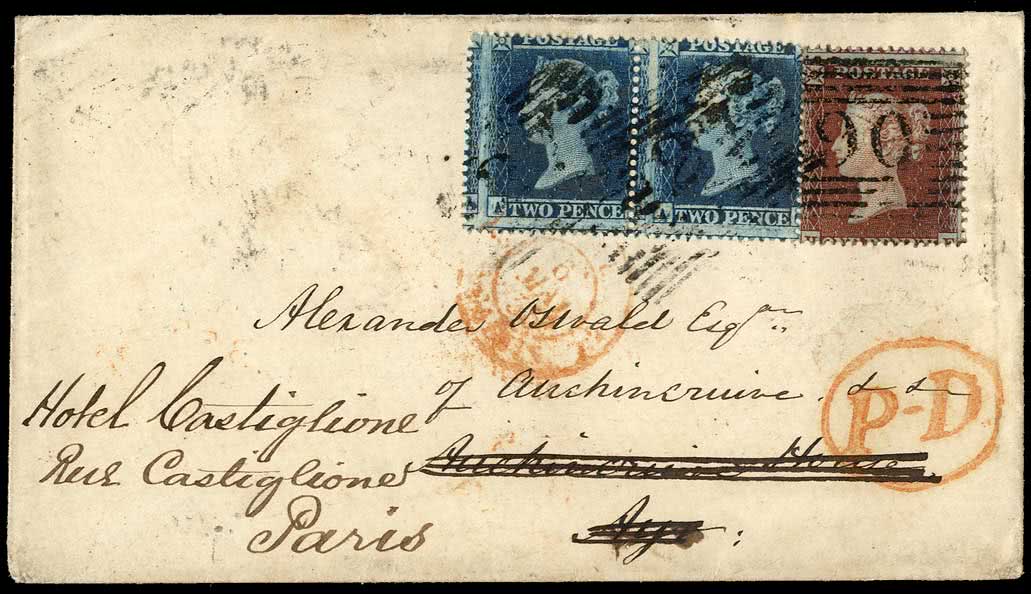 POSTAGE POSTAGE POSTAGE
A TWO PENCE A TWO PENCE
Alexander Oswald Esqre
of Auchincruive & &
Auchincruive House
Ayr:
Hotel Castiglione
Rue Castiglione
Paris
P-D